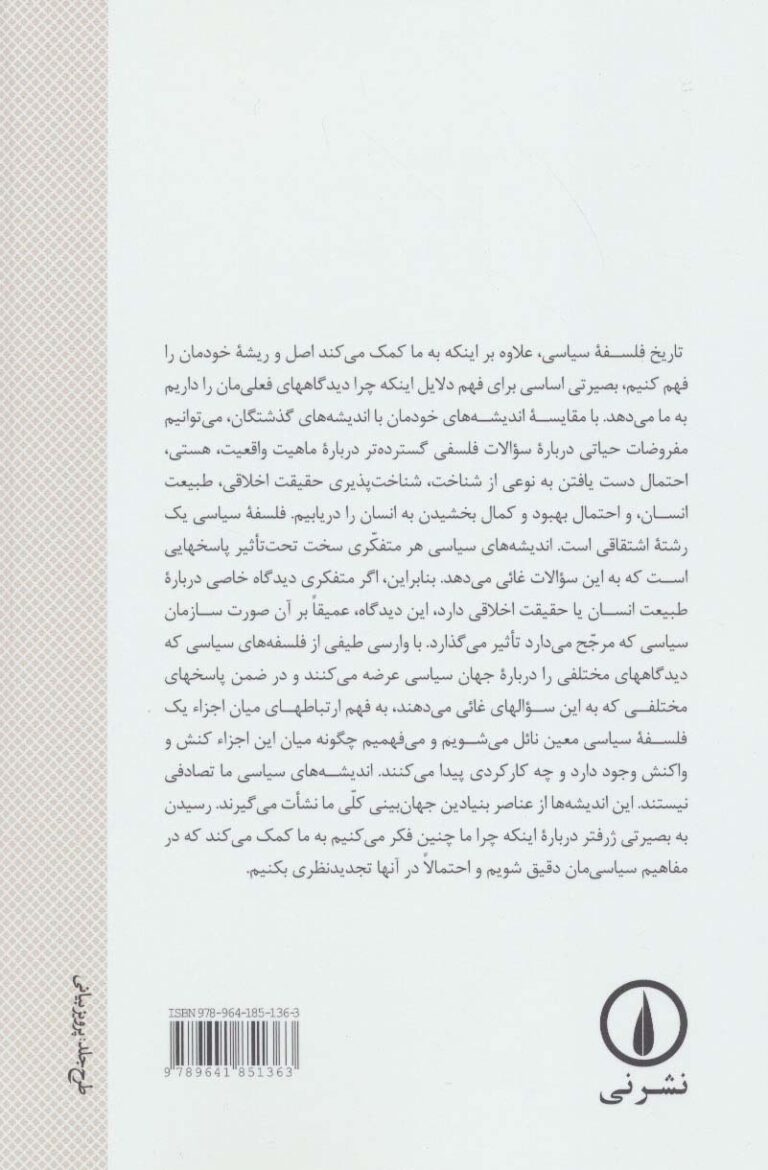 تاریخ فلسفهٔ سیاسی، علاوه بر اینکه به ما کمک می‌کند اصل و ریشهٔ خودمان را
فهم کنیم، بصیرتی اساسی برای فهم دلایل اینکه چرا دیدگاههای فعلی‌مان را داریم
به ما می‌دهد. با مقایسهٔ اندیشه‌های خودمان با اندیشه‌های گذشتگان، می‌توانیم
مفروضات حیاتی دربارهٔ سؤالات فلسفی گسترده‌تر دربارهٔ ماهیت واقعیت، هستی،
احتمال دست یافتن به نوعی از شناخت، شناخت‌پذیری حقیقت اخلاقی، طبیعت
انسان، و احتمال بهبود و کمال بخشیدن به انسان را دریابیم. فلسفهٔ سیاسی یک
رشتهٔ اشتقاقی است. اندیشه‌های سیاسی هر متفکّری سخت تحت‌تأثیر پاسخهایی
است که به این سؤالات غائی می‌دهد. بنابراین، اگر متفکری دیدگاه خاصی دربارهٔ
طبیعت انسان یا حقیقت اخلاقی دارد، این دیدگاه، عمیقاً بر آن صورت سازمان
سیاسی که مرجّح می‌دارد تأثیر می‌گذارد. با وارسی طیفی از فلسفه‌های سیاسی که
دیدگاههای مختلفی را دربارهٔ جهان سیاسی عرضه می‌کنند و در ضمن پاسخهای
مختلفی که به این سؤالهای غائی می‌دهند، به فهم ارتباطهای میان اجزاء یک
فلسفهٔ سیاسی معین نائل می‌شویم و می‌فهمیم چگونه میان این اجزاء کنش و
واکنش وجود دارد و چه کارکردی پیدا می‌کنند. اندیشه‌های سیاسی ما تصادفی
نیستند. این اندیشه‌ها از عناصر بنیادین جهان‌بینی کلّی ما نشأت می‌گیرند. رسیدن
به بصیرتی ژرفتر دربارهٔ اینکه چرا ما چنین فکر می‌کنیم به ما کمک می‌کند که در
مفاهیم سیاسی‌مان دقیق شویم و احتمالاً در آنها تجدیدنظری بکنیم.
طرح جلد: پرویز بیانی
ISBN 978-964-185-136-3
9 789641 851363
نشرنی